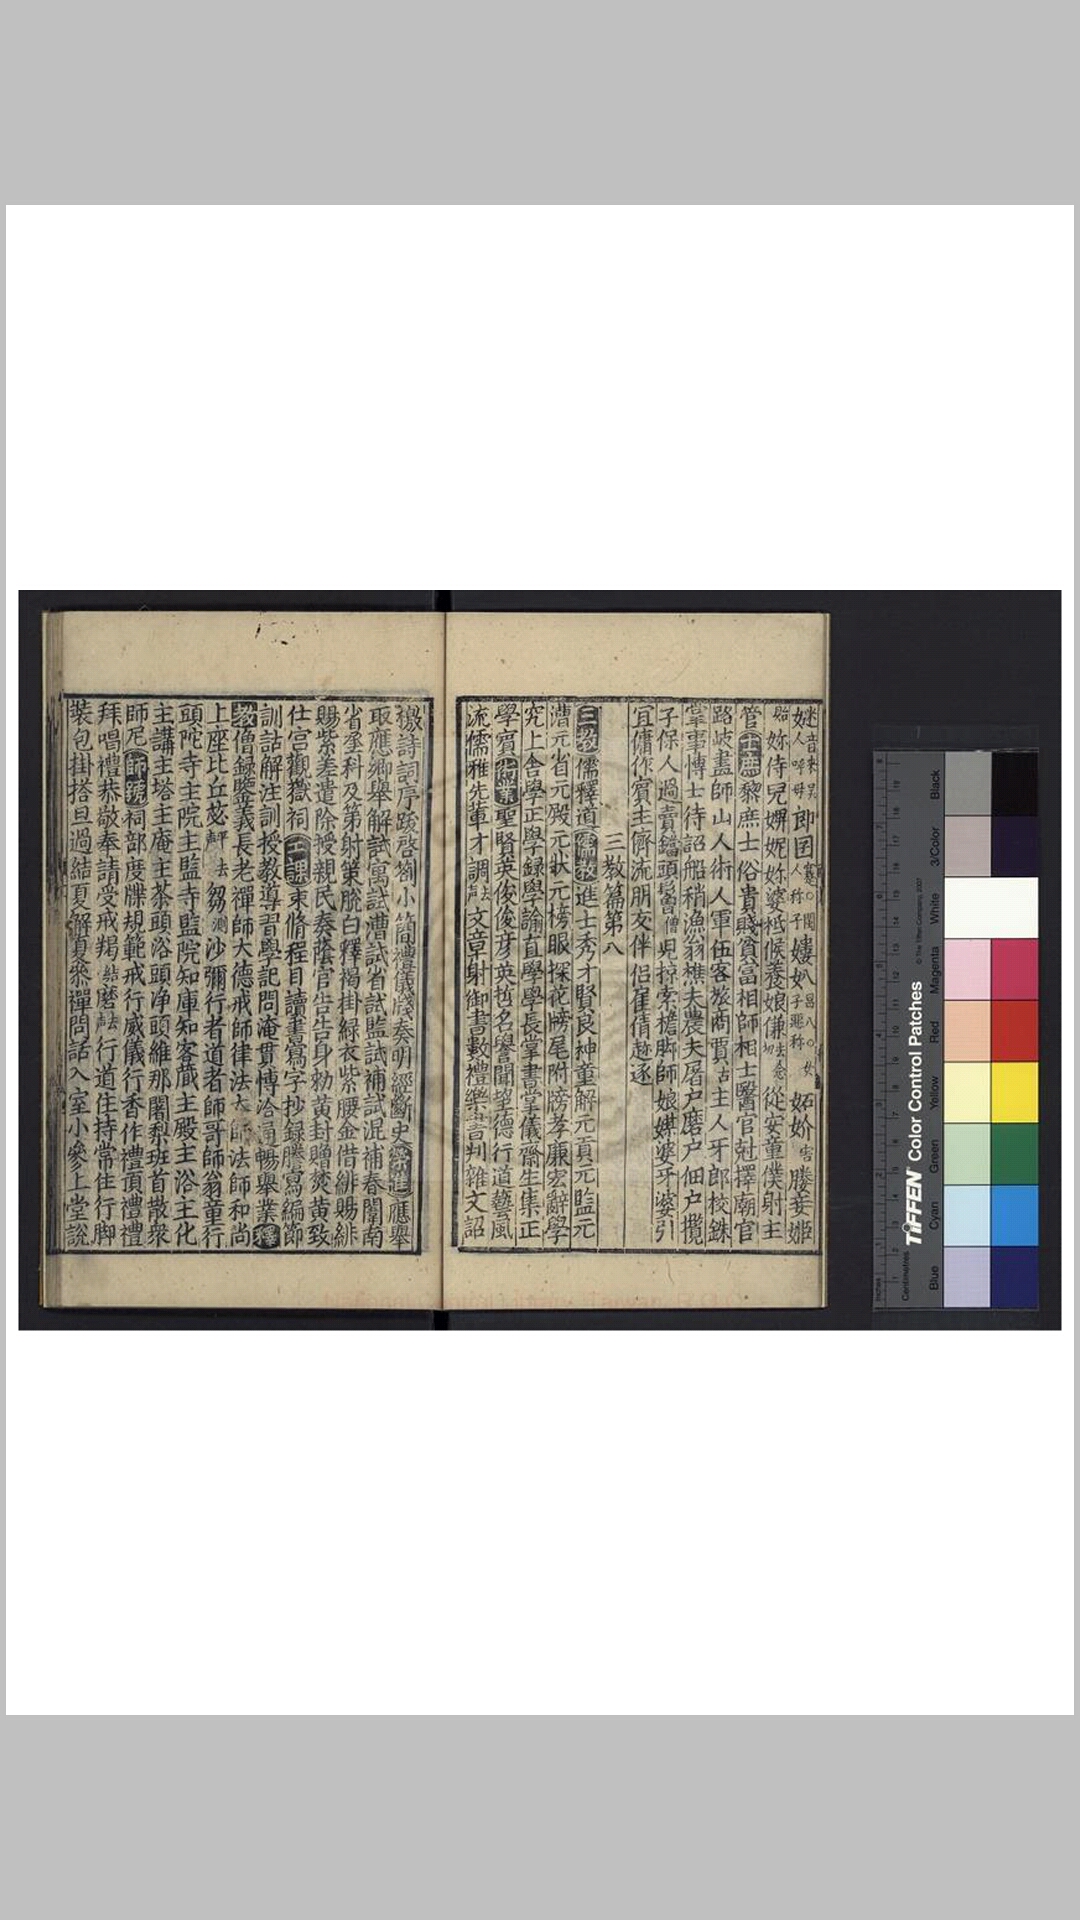 管士庶黎庶士俗貴賤貧富相師相士醫官尅擇廟官
路歧畫師山人術人軍伍客旅商賈古主人牙郎校銖
掌事博士待詔船稍漁翁樵夫農夫屠户磨户佃户攬
子保人過賣鐺頭
宜傭作賓主儕流朋友伴侣雇倩趂逐
三教篇第八
三教儒釋道儒教進士秀才賢良神童解元貢元監元
漕元省元殿元狀元榜眼探花牓尾附牓孝廉宏辭學
究上舍學正學録學諭直學學長掌書掌儀齋生集正
學賓術業聖賢英俊俊彦英哲名譽聞望德行道藝風
流儒雅先輩才調去聲文章射御書數禮樂言判雜文詔
檄詩詞序跋啓劄小簡禮儀牋奏明經斷史榮進應舉
取應鄉舉解試寓試漕試省試監試補試混補春闈南
省丞科及第射策脱白釋褐掛緑衣紫腰金借緋賜緋
賜紫差遣除授親民奏蔭官告告身勑黄封贈焚黄致
仕宫觀嶽祠工課束脩程目讀書寫字抄録謄寫編節
訓詁解注訓授教導習學記問淹貫博洽通暢舉業釋
教僧録鑒義長老禪師大德戒師律法大師法師和尚
上座比丘苾
沙彌行者道者師哥師翁童行
頭陀寺主院主監寺監院知庫知客藏主殿主浴主化
主講主塔主庵主茶頭浴頭净頭維那闍梨班首散衆
師尼師號祠部度牒規範戒行威儀行香作禮頂禮禮
拜唱禮恭敬奉請受戒羯
行道住持常住行脚
裝包掛搭旦過結夏解夏叅禪問話入室小參上堂説
Black
3/Color
White
Magenta
Red
Yellow
Green
Cyan
Blue
TIFFEN Color Control Patches
© The Tiffen Company, 2007
Centimetres
Inches